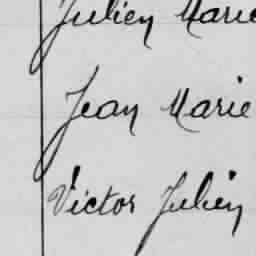 Julien Marie
Jean Marie
Victor Julien